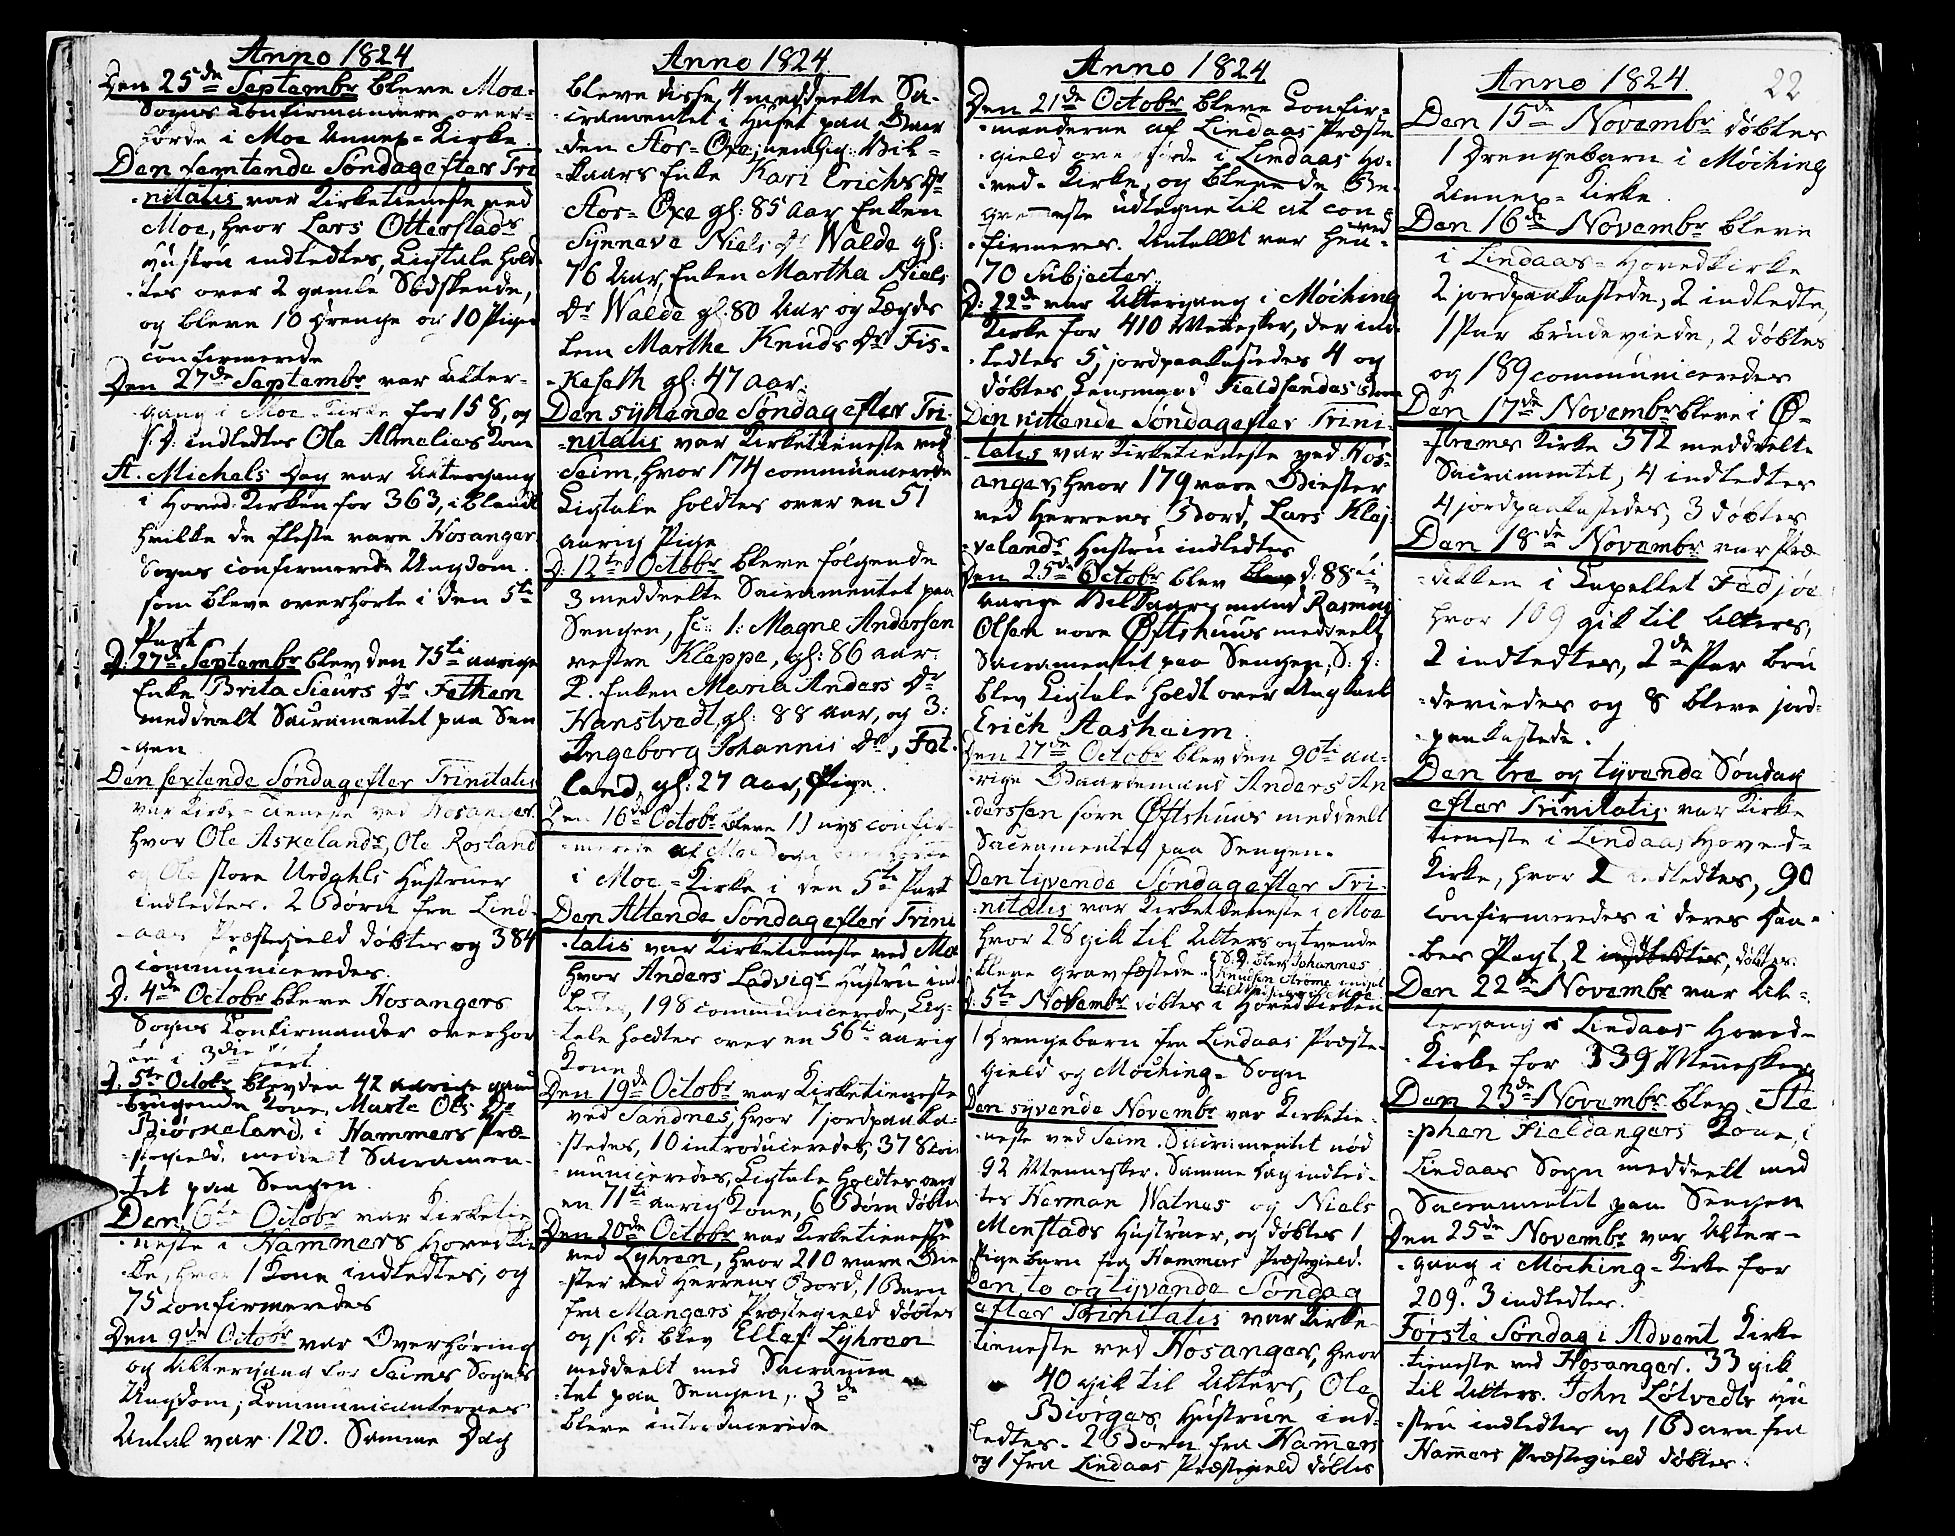 Anno 1824
Den 25de Septembr bleve Moe-
Sogns Confirmandere over-
hørde i Moe Annex-Kirke
Den femtende Søndag efter Tri
nitatis var Kirketieneste ved
Moe, hvor Lars Otterstads
Hustru indledtes, Ligtale hold-
tes over 2 gamle Sødskende,
og bleve 10 drenge og 10 Piger
confirmerede
Den 27de Septembr var Alter-
gang i Moe Kirke for 158, og
s: d: indledtes Ole Almelies Kone
St. Michels Dag var Altergang
i Hoved-Kirken for 363, iblandt
hvilke de fleste vare Hosanger
Sogns confirmerede Ungdom.
som bleve overhørte i den 5te
Part
D: 27de Septembr blev den 75ti aarige
Enke Brita Siurs Dr Fethem
meddeelt Sacramentet paa Sen
-gen
Den sextende Søndag efter Trinitatis
var Kirke-tieneste ved Hosanger
hvor Ole Askelands, Ole Rosland
og Ole store Urdahls Hustruer
indledtes. 2 Børn fra Lind-
aas Præstegield døbtes og 384
communiceredes.
D. 4de Octobr bleve Hosangers
Sogns Confirmander overhør
te i 3die Part.
D: 5te Octobr blev den 42 aarige gaard
brugende Kone, Marte Ols Dr
Biørkeland, i Hammers Præ-
stegield, meddelt Sacramen-
tet paa Sengen.
Den 6te Octobr var Kirketie
neste i Hammers Hovedkir
ke, hvor 1 Kone indledtes, og
75 Confirmeredes
Den 9de Octobr var Overhøring
og Altergang for Seims Sogns
Ungdom; Communicanternes
Antal var 120. Samme Dag
Anno 1824
bleve disse 4 meddeelte Sa-
cramentet i Huset paa Gaar
den Stor-Oxe; nemlig: Vil-
kaars Enke Kari Erichs Dr
Stor-Oxe gl: 85 Aar Enken
Synneva Niels Dr Walde gl:
76 Aar, Enken Martha Niels
Dr Walde gl. 80 Aar og Lægds
lem Marthe Knuds Dr Fis-
keseth gl: 47 aar.
Den syttende Søndag efter Tri-
nitatis var Kirketieneste ved
Seim, hvor 174 communicerede
Ligtale holdtes over en 51
aarig Pige
D: 12te Octobr bleve følgende
3 meddeelte Sacramentet paa
Sengen, sc: 1: Magne Andersen
vestre Kleppe, gl: 86 aar.
2. Enken Maria Anders Dr
Hanstvedt, gl: 88 aar, og 3:
Ingeborg Johannis Dr, Fot-
land, gl: 27 aar, Pige.
Den 16de Octobr bleve 11 nys confir-
merede af Moe Sogn overhørte
i Moe-Kirke i den 5te Part
Den Attende Søndag efter Trini
tatis var Kirketieneste ved Moe
hvor Anders Ladvigs Hustru ind
ledtes, 198 communicerede, Lig-
tale holdtes over en 56ti aarig
Kone
Den 19de Octobr var Kirketieneste
ved Sandnes, hvor 7 jordpaaka-
stedes, 10 introduceredes, 378 com
municeredes, Ligtale holdtes over
en 71ti aarig Kone, 6 Børn døbtes
Den 20de Octobr var Kirketieneste
ved Lyhren, hvor 210 vare Giæ
ster ved Herrens Bord, 1 Barn
fra Mangers Præstegield døbtes
og s: d: blev Ellef Lyhren
meddeelt med Sacramen
tet paa Sengen, 3de
bleve introducerede
Anno 1824
Den 21de Octobr bleve Confir-
manderne af Lindaas Præste
gield overhørde i Lindaas Ho-
ved-Kirke, og bleve de Be-
qvemmeste udtagne til at con-
firmeres. Antallet var hen-ved
70 Subjecter
D: 22de var Altergang i Møching
Kirke for 410 Mennesker, der ind-
ledtes 5, jordpaakastedes 4 og
døbtes Lensmand Fieldsendes Barn
Den nittende Søndag efter Trini-
tatis var Kirketieneste ved Hos-
anger, hvor 179 vare Giester
ved Herrens Bord, Lars Klej-
velands Hustru indledtes
Den 25de Octobr blev d: 88ti
aarige Vilkaarsmand Rasmus
Olsen nore Øftshuus meddeelt
Sacramentet paa Sengen, S: d:
blev Ligtale holdt over Ungkarl
Erich Aasheim
Den 27de Octobr blev den 90ti aa-
rige Gaardmand Anders An
derssen søre Øftshuus meddeelt
Sacramentet paa Sengen.
Den tyvende Søndag efter Tri-
nitatis var Kirketieneste i Moe
hvor 28 gik til Alters og tvende
bleve gravfæstede. S. D. blev Johannes
Knudsen Strøme
D: 5te Novembr døbtes i Hovedkirken
1 Drengebarn fra Lindaas Præste-
gield og Møching-Sogn
Den syvende Novembr var Kirketie-
neste ved Seim. Sacramentet nød
92 Mennesker. Samme Dag indled-
tes Herman Watnes og Niels
Monstads Hustruer, og døbtes 1
Pigebarn fra Hammers Præstegield.
Den to og tyvende Søndag
efter Trinitatis var Kirke-
tieneste ved Hosanger, hvor
40 gik til Alters, Ole
Biørges Hustrue ind-
ledtes. 2 Børn fra Hamers
og 1 fra Lindaas Præstegield døbtes
22
Anno 1824.
Den 15de Novembr døbtes
1 Drengebarn i Møching
Annex-Kirke
Den 16de Novembr bleve
i Lindaas-Hovedkirke
2 jordpaakastede, 2 indledte,
1 Par brudeviede, 2 døbtes
og 189 communiceredes
Den 17de Novembr bleve i Ø-
strems Kirke 372 meddeelte
Sacramentet, 4 indledtes
4 jordpaakastedes, 3 døbtes
Den 18de Novembr var Præ-
diken i Capellet Fedjøe
hvor 109 gik til Alters,
2 indledtes, 2de Par bru
deviedes og 8 bleve jord-
paakastede.
Den tre og tyvende Søndag
efter Trinitatis var Kirke
tieneste i Lindaas Hoved-
Kirke, hvor 2 indledtes, 90
confirmeredes i deres Daa-
bes Pagt, 2 indledtes, døbtes.
Den 22de Novembr var Al-
tergang i Lindaas Hoved-
Kirke for 339 Mennesker
Den 23de Novembr blev Ste
phen Fieldangers Kone, i
Lindaas Sogn meddeelt med
Sacramentet paa Sengen
Den 25de Novembr var Alter-
gang i Møching-Kirke for
209. 3 indledtes.
Første Søndag i Advent Kirke
tieneste ved Hosanger. 33 gik
til Alters. John Løtvedts Hu
stru indledtes og 1 Barn fra
Hamers Præstegield døbtes.